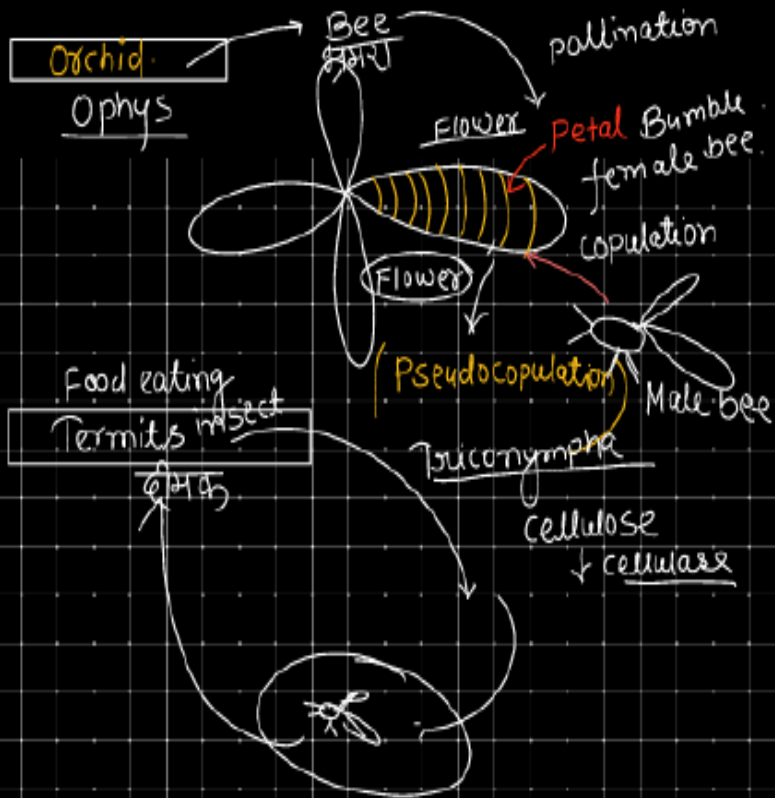 Bee
भ्रमर
pollination
Orchid.
Ophys
Flower
Petal Bumble.
female bee.
copulation
Flower
Pseudocopulation
Male bee
Food eating
Termits insect
दीमक
Triconympha
cellulose
↓ cellulase